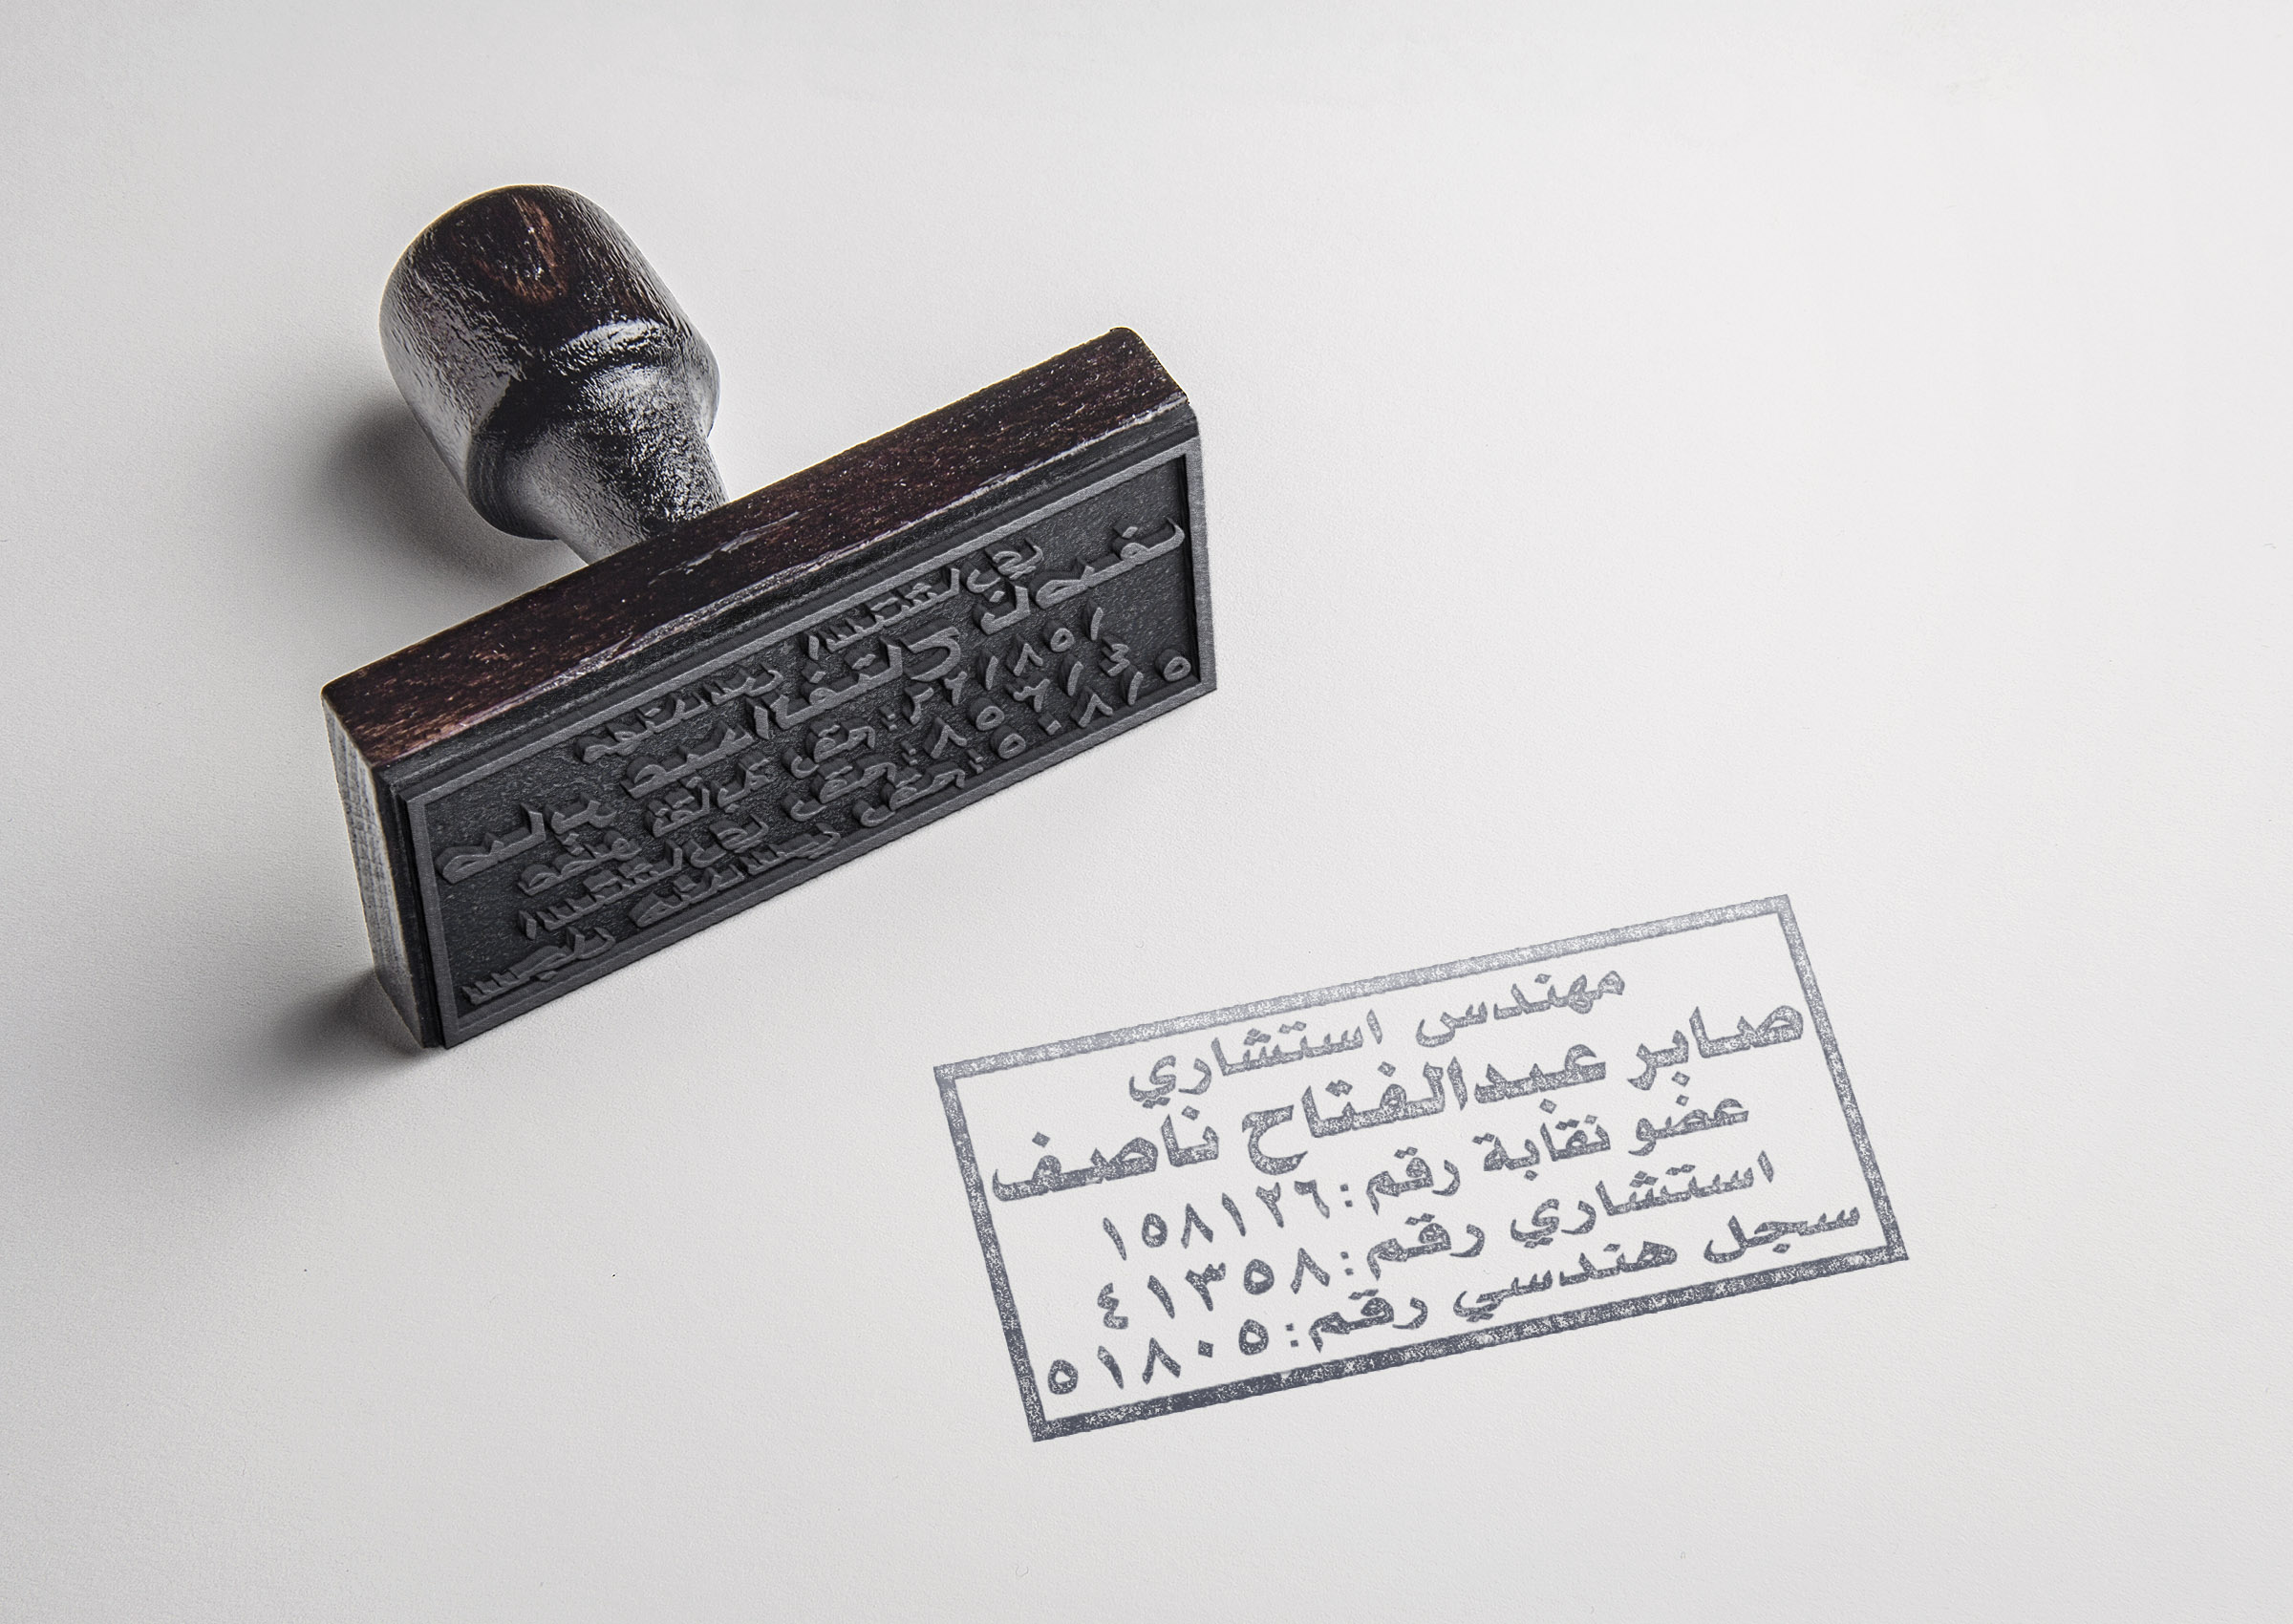 مهندس استشاري
صابر عبدالفتاح ناصف
عضو نقابة رقم: ١٥٨١٢٦
استشاري رقم: ٤١٣٥٨
سجل هندسي رقم: ٥١٨٠٥